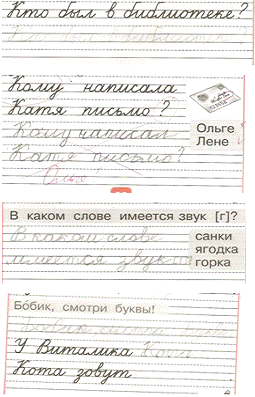 Кто был в библиотеке?
Кто был в библиотеке?
Кому написала
Катя письмо?
Ольге
Лене
Кому написал
Катя письмо?
Ольге
В каком слове имеется звук [г]?
В каком слове
имеется звук
санки
ягодка
горка
Бобик, смотри буквы!
Бобик смотри
У Виталика
Кота зовут